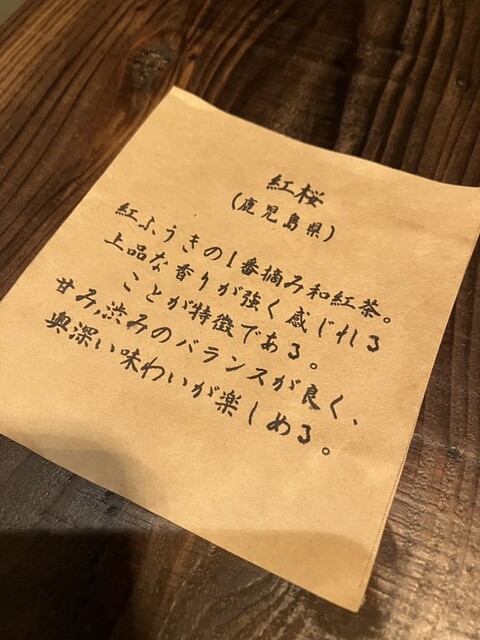 紅桜
(鹿児島県)
紅ふうきの1番摘み和紅茶。
上品な香りが強く感じれる
ことが特徴である。
甘み,渋みのバランスが良く、
奥深い味わいが楽しめる。